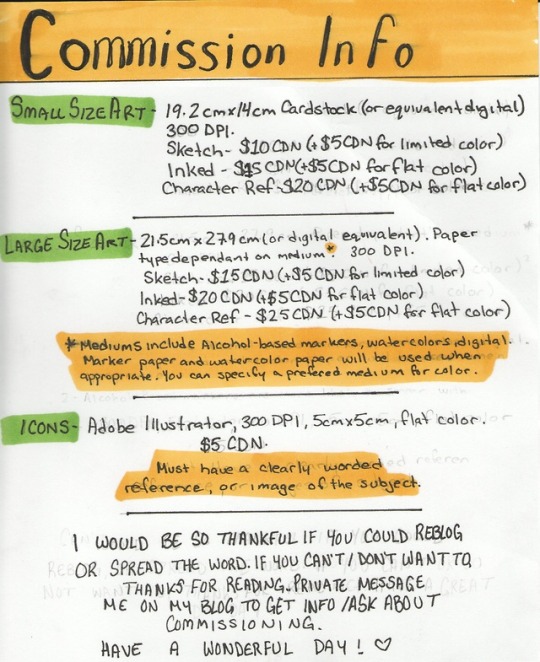 Commission Info
SMALL SIZE ART - 19.2cm x 14cm Cardstock (or equivalent digital)
300 DPI.
Sketch - $10 CDN (+$5CDN for limited color)
Inked - $15 CDN (+$5CDN for flat color)
Character Ref - $20 CDN (+$5CDN for flat color)
LARGE SIZE ART - 21.5cm x 27.9cm (or digital equivalent). Paper
type dependant on medium*. 300 DPI.
Sketch - $15 CDN (+$5 CDN for limited color)
Inked - $20 CDN (+$5CDN for flat color)
Character Ref - $25 CDN (+$5 CDN for flat color)
*Mediums include Alcohol-based markers, watercolors, digital.
Marker paper and watercolor paper will be used when
appropriate. You can specify a prefered medium for color.
ICONS - Adobe Illustrator, 300 DPI, 5cmx5cm, flat color.
$5 CDN.
Must have a clearly worded
reference, or image of the subject.
I WOULD BE SO THANKFUL IF YOU COULD REBLOG
OR SPREAD THE WORD. IF YOU CAN'T/DON'T WANT TO,
THANKS FOR READING. PRIVATE MESSAGE
ME ON MY BLOG TO GET INFO/ASK ABOUT
COMMISSIONING.
HAVE A WONDERFUL DAY! ♡